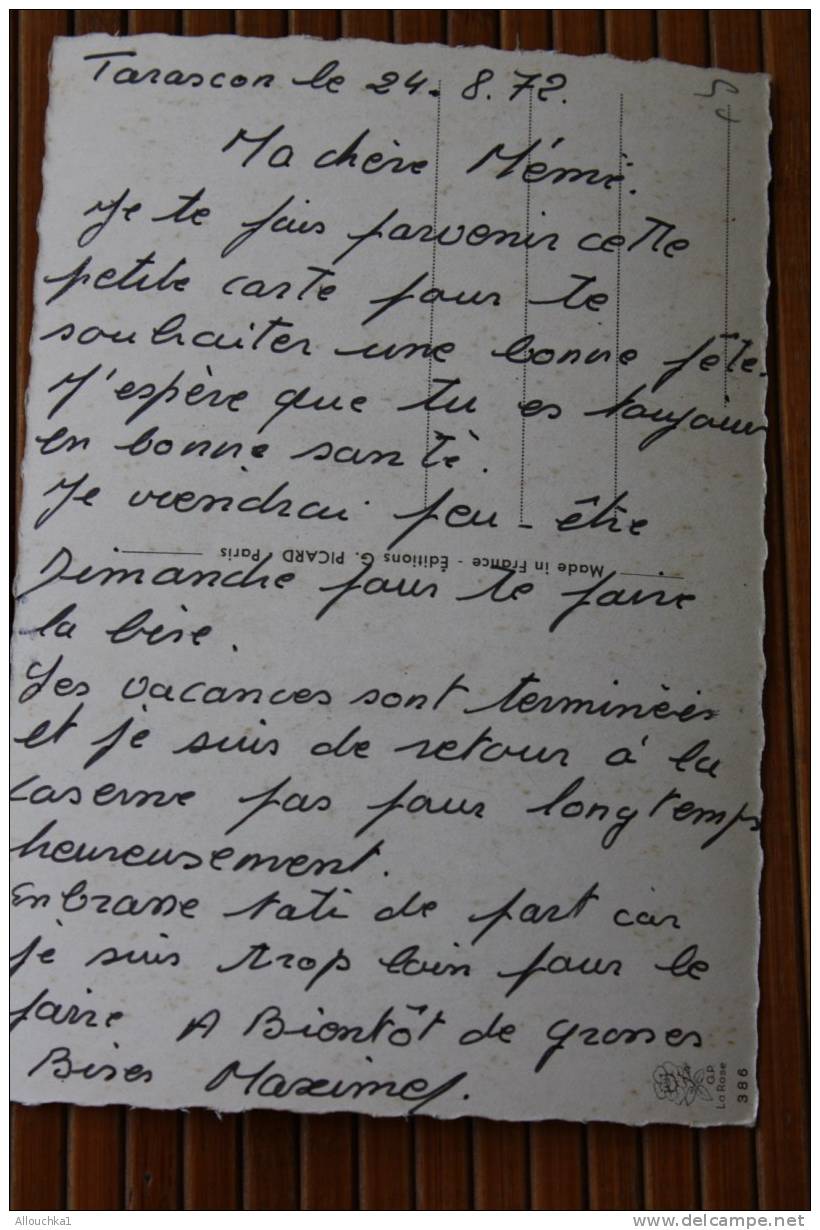 Tarascon le 24. 8. 72.
Ma chère Mémé.
Je te fais parvenir cette
petite carte pour te
souhaiter une bonne fête.
J'espère que tu es toujours
en bonne santé.
Je viendrai peu-être
Made in France - Éditions G. PICARD Paris
Dimanche pour te faire
la bise.
Les vacances sont terminées
et je suis de retour à la
caserne pas pour longtemps
heureusement.
Enbrasse tati de part car
je suis trop loin pour le
faire A Bientôt de grosses
Bises Maxime
G.P.
La Rose
386
Allouchka1
http://www.delcampe.net